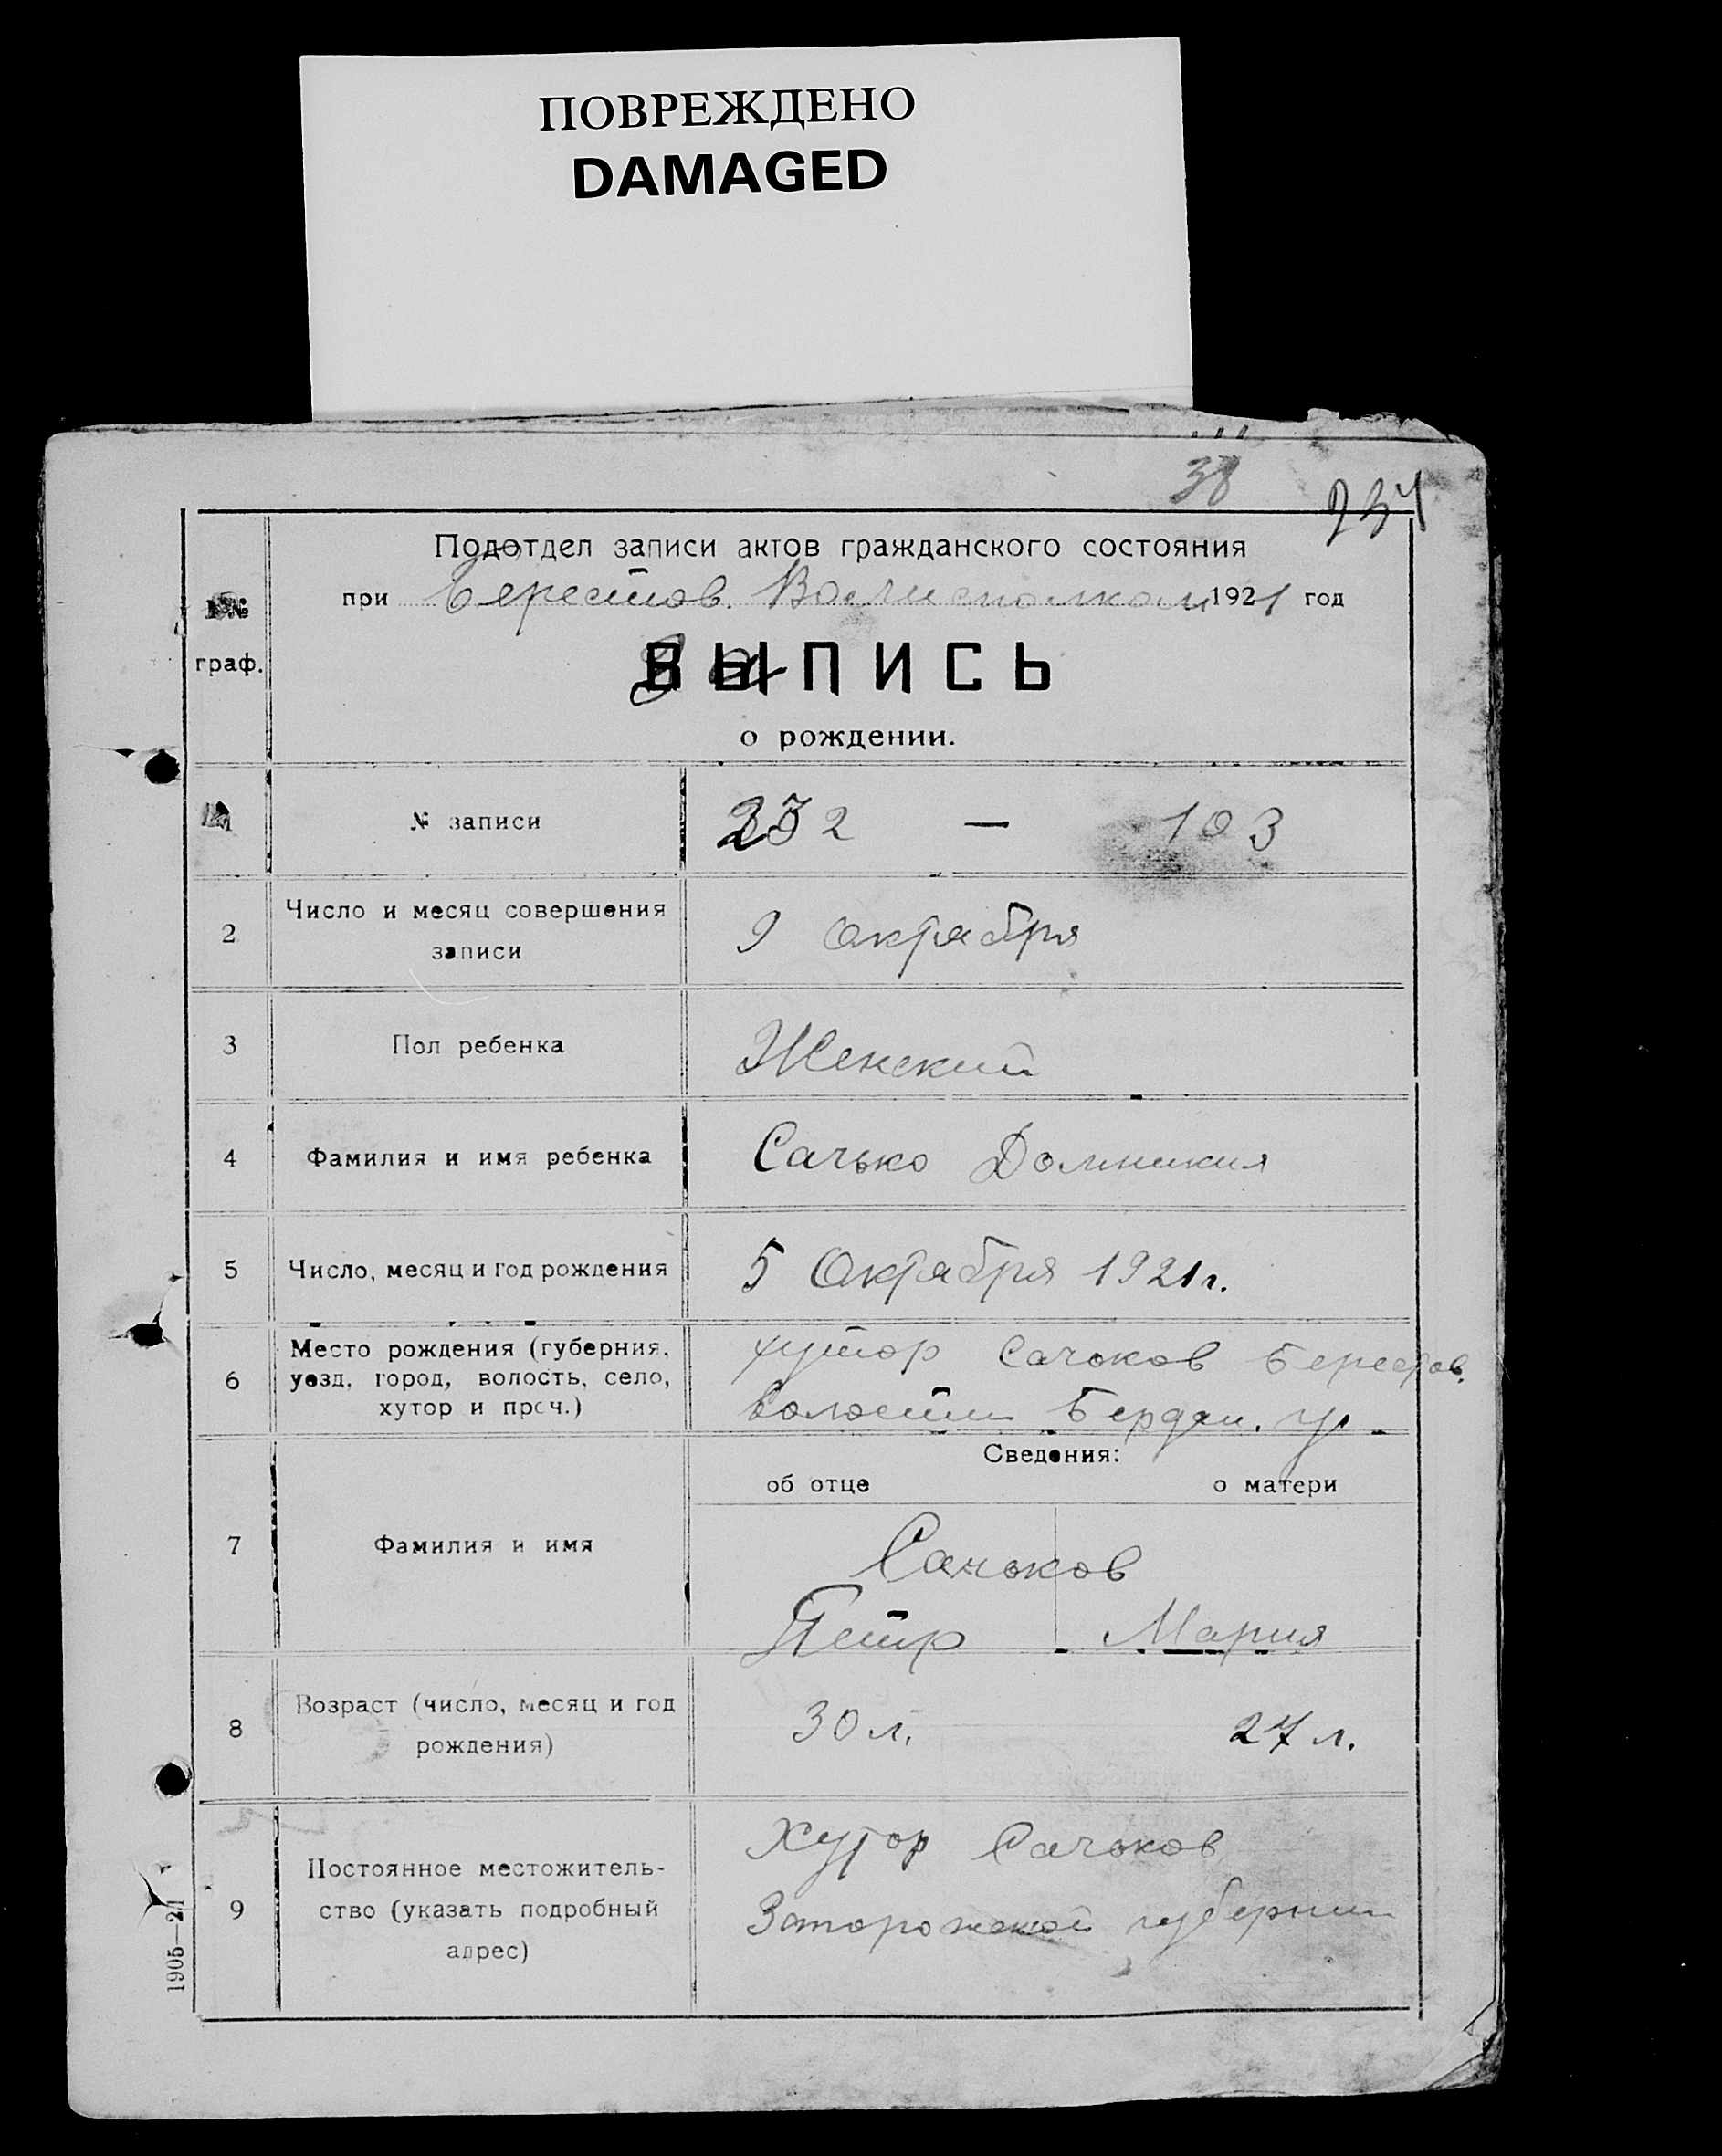 ПОВРЕЖДЕНО
DAMAGED
38
234
Подотдел записи актов гражданского состояния
при Берестов. Волисполком 1921 год
№№
граф.
ВЫПИСЬ
За
о рождении.
1 № записи 232 — 103
2 Число и месяц совершения
записи
9 Октября
3 Пол ребенка Женский
4 Фамилия и имя ребенка Сачько Домникия
5 Число, месяц и год рождения 5 Октября 1921 г.
6 Место рождения (губерния,
уезд, город, волость, село,
хутор и проч.)
хутор Сачоков Берестов.
волости Бердян. у.
Сведения:
об отце о матери
7 Фамилия и имя
Сачьков
Петр Мария
8 Возраст (число, месяц и год
рождения)
30 л. 27 л.
9 Постоянное местожитель-
ство (указать подробный
адрес)
Хутор Сачьков
Запорожской губернии
1905—21